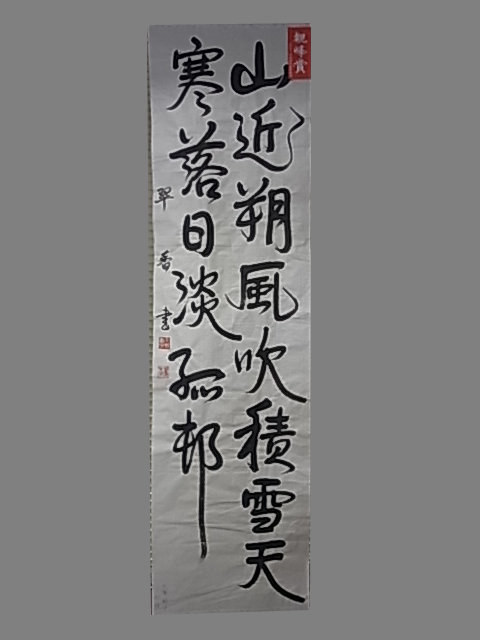 山近朔風吹積雪天
寒落日淡孤邨
翠香書
観峰賞